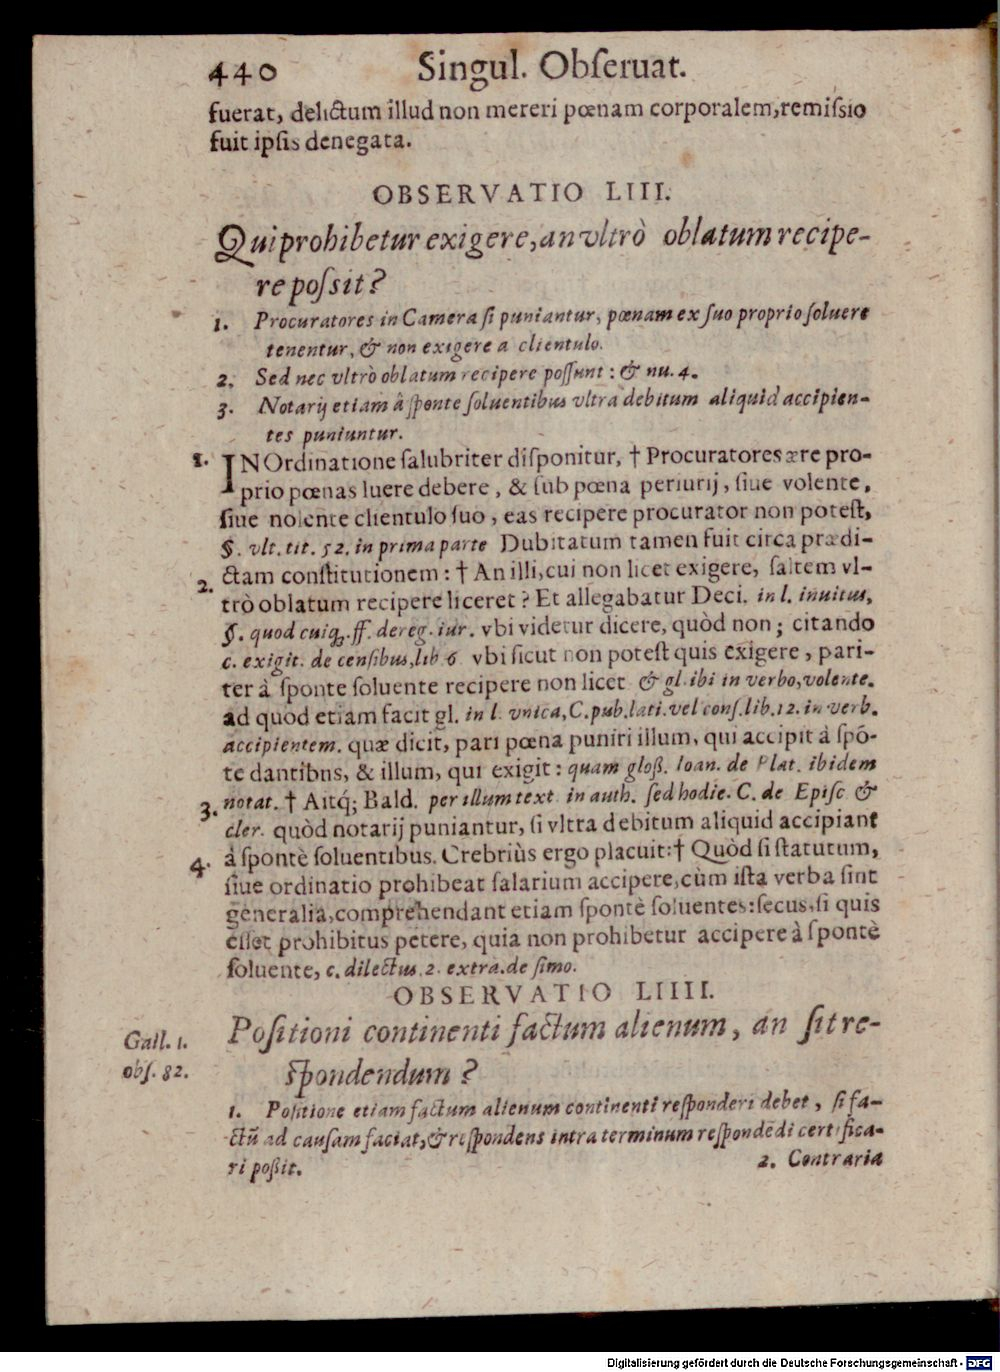 440 Singul. Obſeruat.
fuerat, delictum illud non mereri pœnam corporalem, remiſsio
fuit ipſis denegata.
OBSERVATIO LIII.
Qui prohibetur exigere, an vltrò oblatum recipe-
re poſsit?
1. Procuratores in Camera ſi puniantur, pœnam ex ſuo proprio ſoluere
tenentur, & non exigere a clientulo.
2. Sed nec vltrò oblatum recipere poſſunt: & nu. 4.
3. Notarij etiam â ſponte ſoluentibus vltra debitum aliquid accipien-
tes puniuntur.
1. IN Ordinatione ſalubriter diſponitur, † Procuratores ære pro-
prio pœnas luere debere, & ſub pœna periurij, ſiue volente,
ſiue nolente clientulo ſuo, eas recipere procurator non poteſt,
§. vlt. tit. 52. in prima parte Dubitatum tamen fuit circa prædi-
2. ctam conſtitutionem: † An illi, cui non licet exigere, ſaltem vl-
trò oblatum recipere liceret? Et allegabatur Deci. in l. inuitus,
§. quod cuiq́. ff. de reg. iur. vbi videtur dicere, quòd non; citando
c. exigit. de cenſibus, lib 6 vbi ſicut non poteſt quis exigere, pari-
ter à ſponte ſoluente recipere non licet & gl. ibi in verbo, volente.
ad quod etiam facit gl. in l. vnica, C. pub. lati. vel conſ. lib. 12. in verb.
accipientem. quæ dicit, pari pœna puniri illum, qui accipit à ſpõ-
te dantibus, & illum, qui exigit: quam gloß. Ioan. de Plat. ibidem
3. notat. † Aitq́; Bald. per illum text in auth. ſed hodie. C. de Epiſc &
cler. quòd notarij puniantur, ſi vltra debitum aliquid accipiant
4. à ſpontè ſoluentibus. Crebriùs ergo placuit: † Quòd ſi ſtatutum,
ſiue ordinatio prohibeat ſalarium accipere, cùm iſta verba ſint
generalia, comprehendant etiam ſpontè ſoluentes: ſecus, ſi quis
eſſet prohibitus petere, quia non prohibetur accipere à ſpontè
ſoluente, c. dilectus 2. extra. de ſimo.
OBSERVATIO LIIII.
Gail. 1.
obſ. 82.
Poſitioni continenti factum alienum, an ſit re-
ſpondendum?
1. Poſitione etiam factum alienum continenti reſponderi debet, ſi fa-
ctũ ad cauſam faciat, & reſpondens intra terminum reſpondẽdi certifica-
ri poßit.
2. Contraria
Digitalisierung gefördert durch die Deutsche Forschungsgemeinschaft - DFG